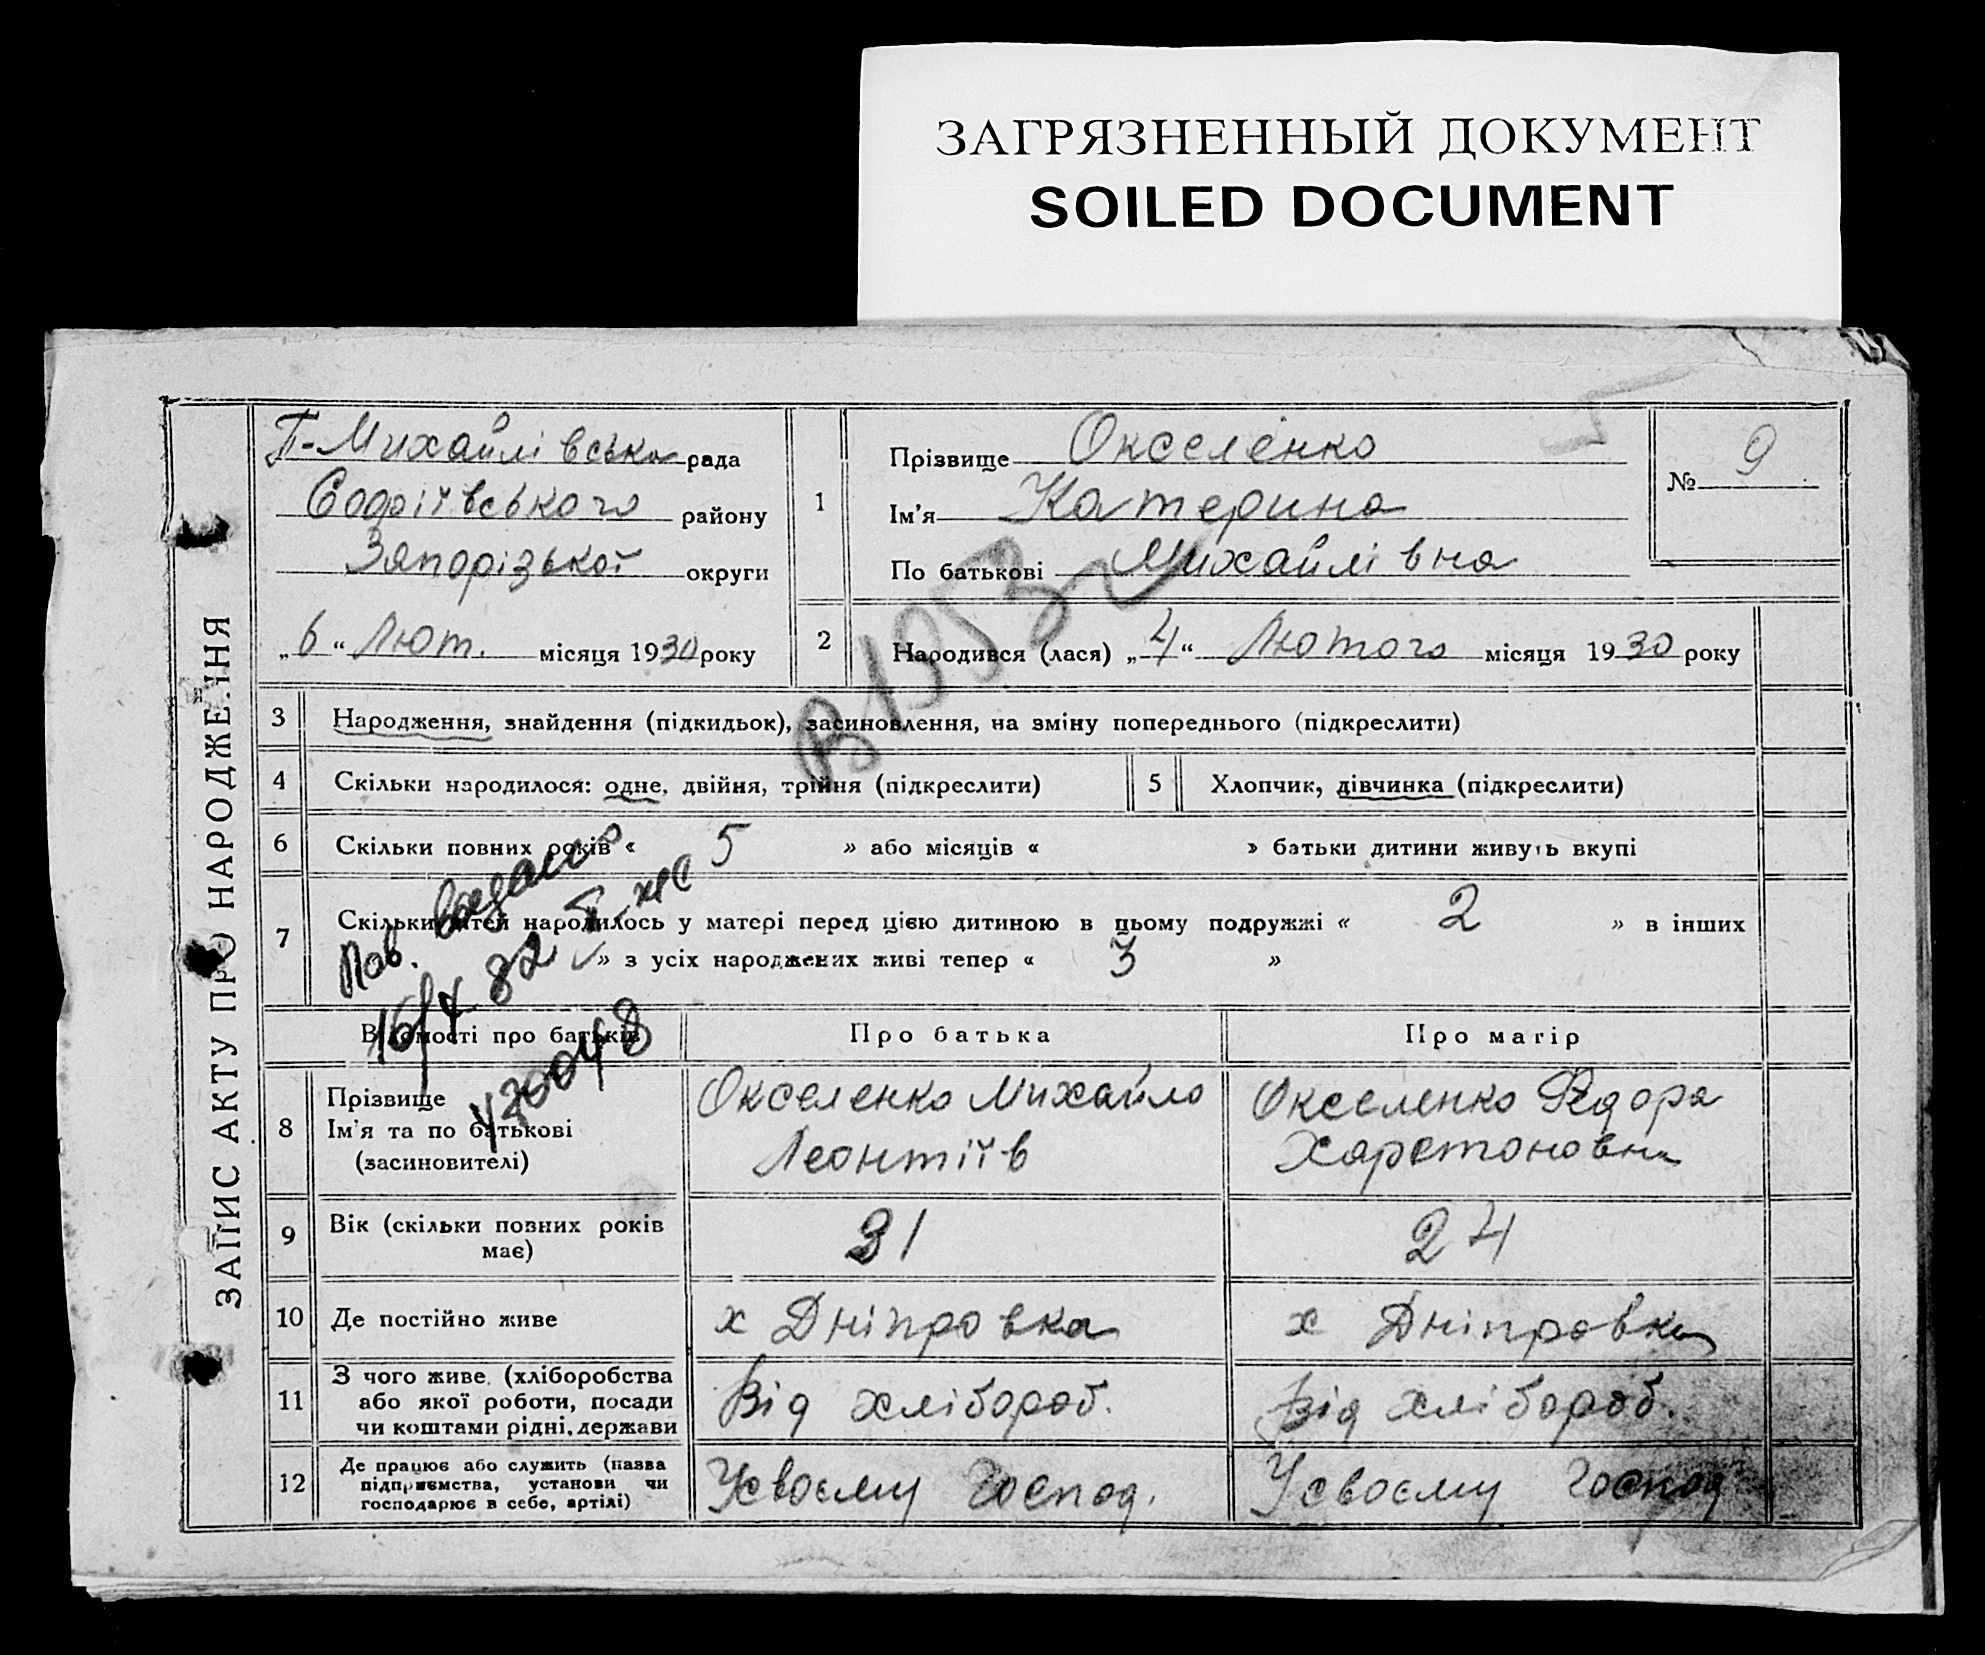 ЗАГРЯЗНЕННЫЙ ДОКУМЕНТ
SOILED DOCUMENT
ЗАПИС АКТУ ПРО НАРОДЖЕННЯ
П-Михайлівська рада
Софіївського району
Запорізької округи
„6“ Лют. місяця 1930 року
1
Прізвище Окселенко
Ім'я Катерина
По батькові Михайлівна
№ 9
5
2
Народився (лася) „4“ Лютого місяця 1930 року
В 1953
3 Народження, знайдення (підкидьок), засиновлення, на зміну попереднього (підкреслити)
4 Скільки народилося: одне, двійня, трійня (підкреслити)
5 Хлопчик, дівчинка (підкреслити)
6 Скільки повних років « 5 » або місяців « » батьки дитини живуть вкупі
7 Скільки дітей народилось у матері перед цією дитиною в цьому подружжі « 2 » в інших
» з усіх народжених живі тепер « 3 »
Пов. видано
Відомості про батьків
Про батька
Про матір
8 Прізвище
Ім'я та по батькові
(засиновителі)
Окселенко Михайло
Леонтіїв
Окселенко Федора
Харетоновна
9 Вік (скільки повних років
має)
31
24
10 Де постійно живе
х Дніпровка
х Дніпровка
11 З чого живе (хліборобства
або якої роботи, посади
чи коштами рідні, держави
Від хлібороб.
Від хлібороб.
12 Де працює або служить (назва
підприємства, установи чи
господарює в себе, артілі)
Усвоєму Господ.
Усвоєму Господ